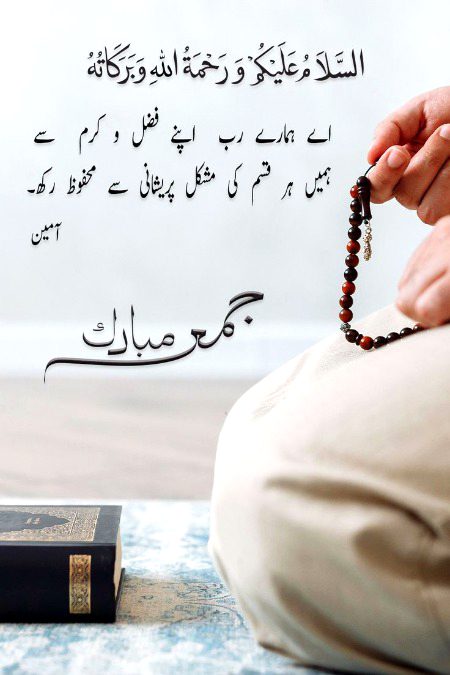 السَّلَامُ عَلَيْكُمْ وَرَحْمَةُ اللهِ وَبَرَكَاتُهُ
اے ہمارے رب اپنے فضل و کرم سے
ہمیں ہر قسم کی مشکل پریشانی سے محفوظ رکھ۔
آمین
جمعہ مبارک